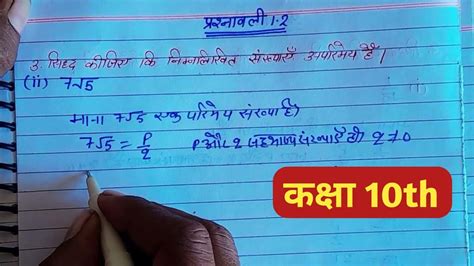 प्रश्नावली 1.2
3. सिद्ध कीजिए कि निम्नलिखित संख्याएँ अपरिमेय हैं।
(ii) 7√5
माना 7√5 एक परिमेय संख्या है।
7√5 = P/2 P और 2 सहभाज्य संख्याएँ हो 2 ≠ 0
कक्षा 10th